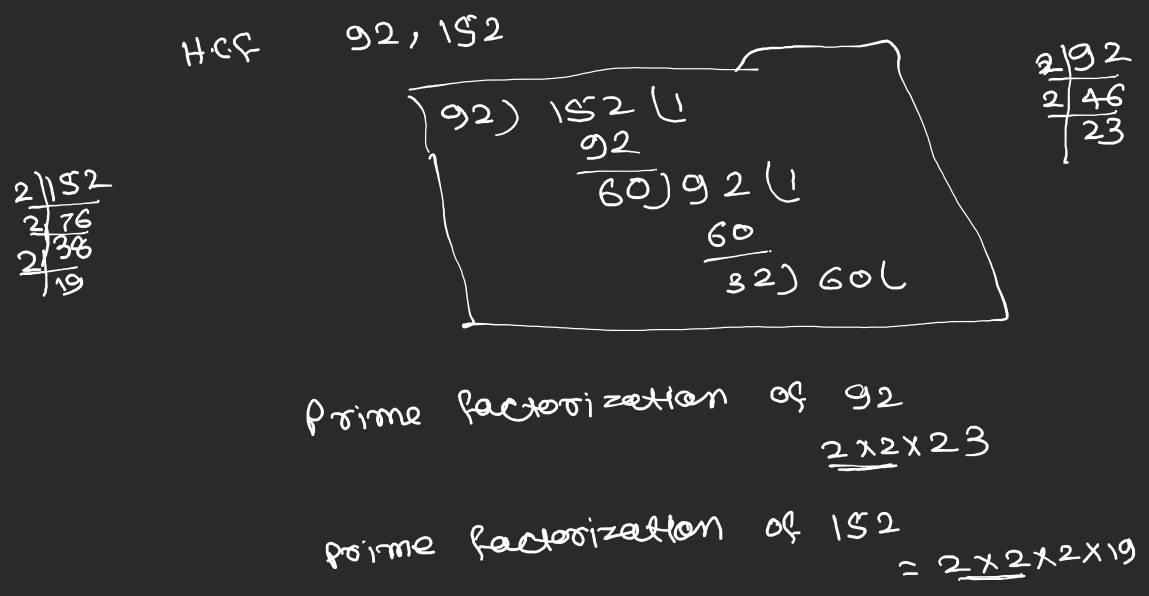 H.C.F 92, 152
92) 152 (1
92
60) 92 (1
60
32) 60 (
2|92
2|46
|23
2|152
2|76
2|38
|19
Prime factorization of 92
2×2×23
Prime factorization of 152
= 2×2×2×19